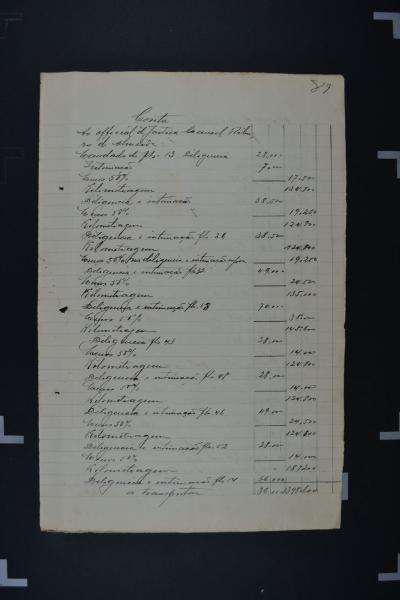 89
Conta
Ao official de Justiça Manoel Ribei
ro de Almeida
Mandado de fls. 13 Diligencia 28,000
Intimação 7000
Menos 50% 17.500
Kilometragem 124.800
Deligencia e intimação 38.500
Menos 50% 19.250
Kilometragem 124.800
Diligencia e intimação fls. 28 38.500
Kilometragem 124.800
Menos 50% na diligencia e intimação 19,250
Deligencia e intimação 49.000
Menos 50% 24.500
Kilometragem 135,000
Deligencia e intimação fls. 38 70.000
Menos 50% 35.000
Kilometragem 145.600
Deligencia fls. 43 28.000
Menos 50% 14.000
Kilometragem 124.800
Deligencia e intimação fls. 48 28.000
Menos 50% 14.000
Kilometragem 124.800
Deligencia e intimação fls. 46 49.000
Menos 50% 24,500
Kilometragem 124.800
Deligencia e intimação fls. 52 28.000
Menos 50% 14.000
Kilometragem
Deligencia e intimação fls. 14 36,000
a transportar